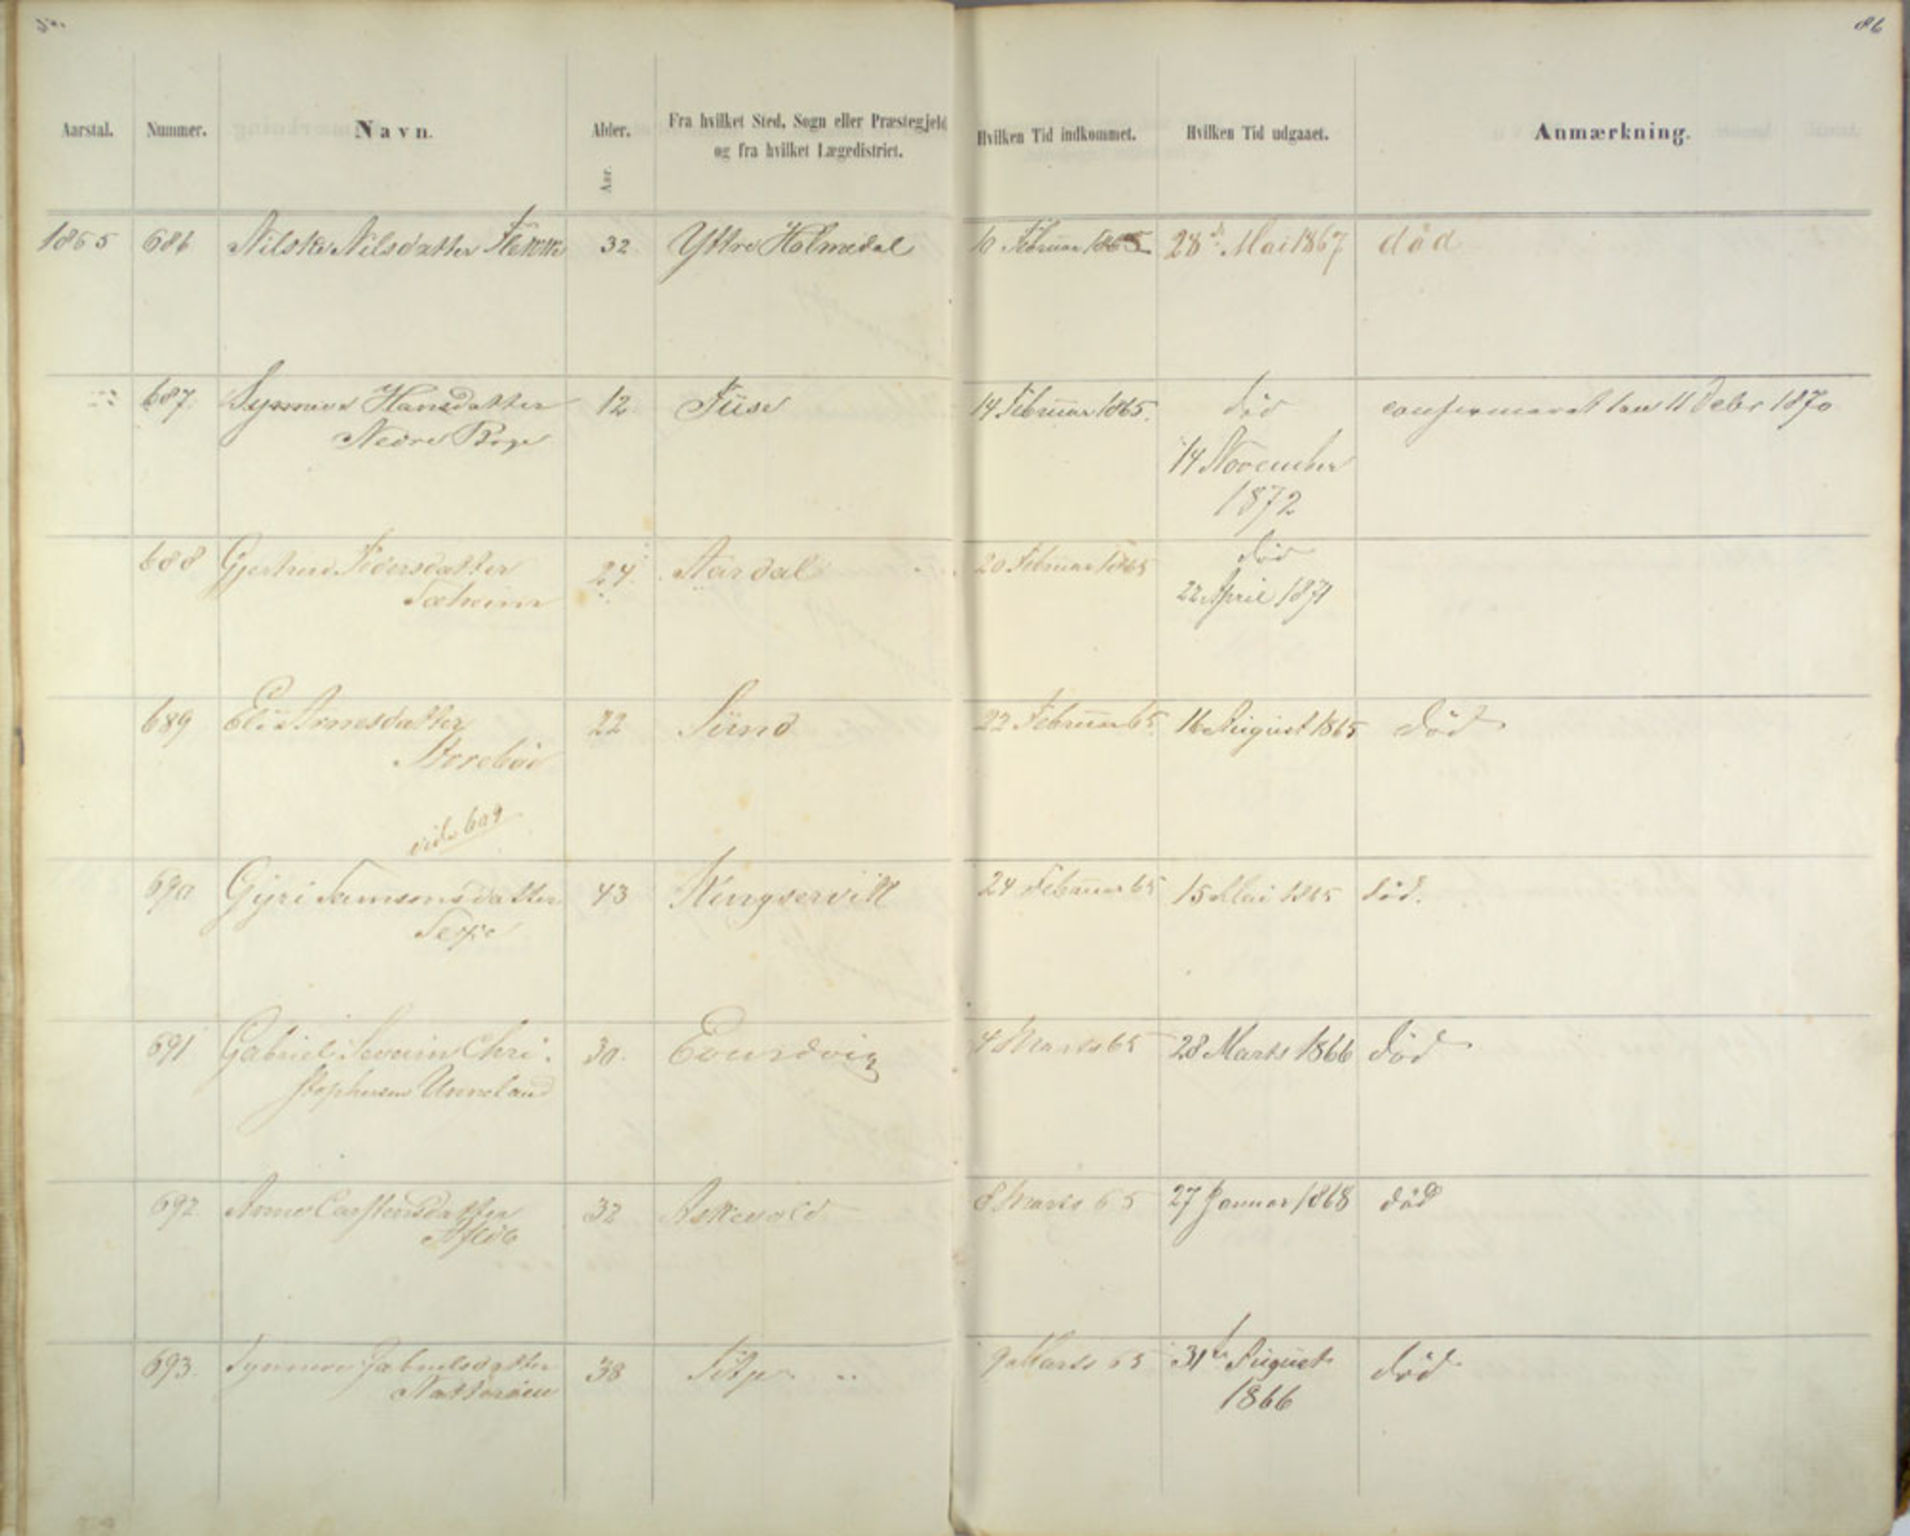 86
Aarstal. Nummer. Navn. Alder. Fra hvilket Sted, Sogn eller Præstegjeld Hvilken Tid indkommet. Hvilken Tid udgaaet. Anmærkning.
Aar. og fra hvilket Lægedistrict.
1865 686 Nilske Nilsdatter 32 Yttre Holmedal 10 Februar 1865 28de Mai 1867 död
687. Synneve Hansdatter 12 Füse 14 Februar 1865. död confirmeret den 11 Debr 1870
Nedre Böge 14 November
1872
688 Gjertrud Pedersdatter 24. Aardal 20 Februar 1865 död
22 April 1871
689 Eli Arnesdatter 22 Sünd 22 Februar 65 16 August 1865 död
Storeböe
vide 609
690 Gyri Samsonsdatter 43 Kingservik 24 Februar 65 15 Mai 1865 död.
691 Gabriel Severin Chri- 30. Evindvig 4 Marts 65 28 Marts 1866 död
stophersen Unneland
692 Anne Carstensdatter 32 Askevold 8 Marts 65 27 Januar 1868 död
693. Synneve Jakobsdatter 38 9 Marts 65 31te August död
1866